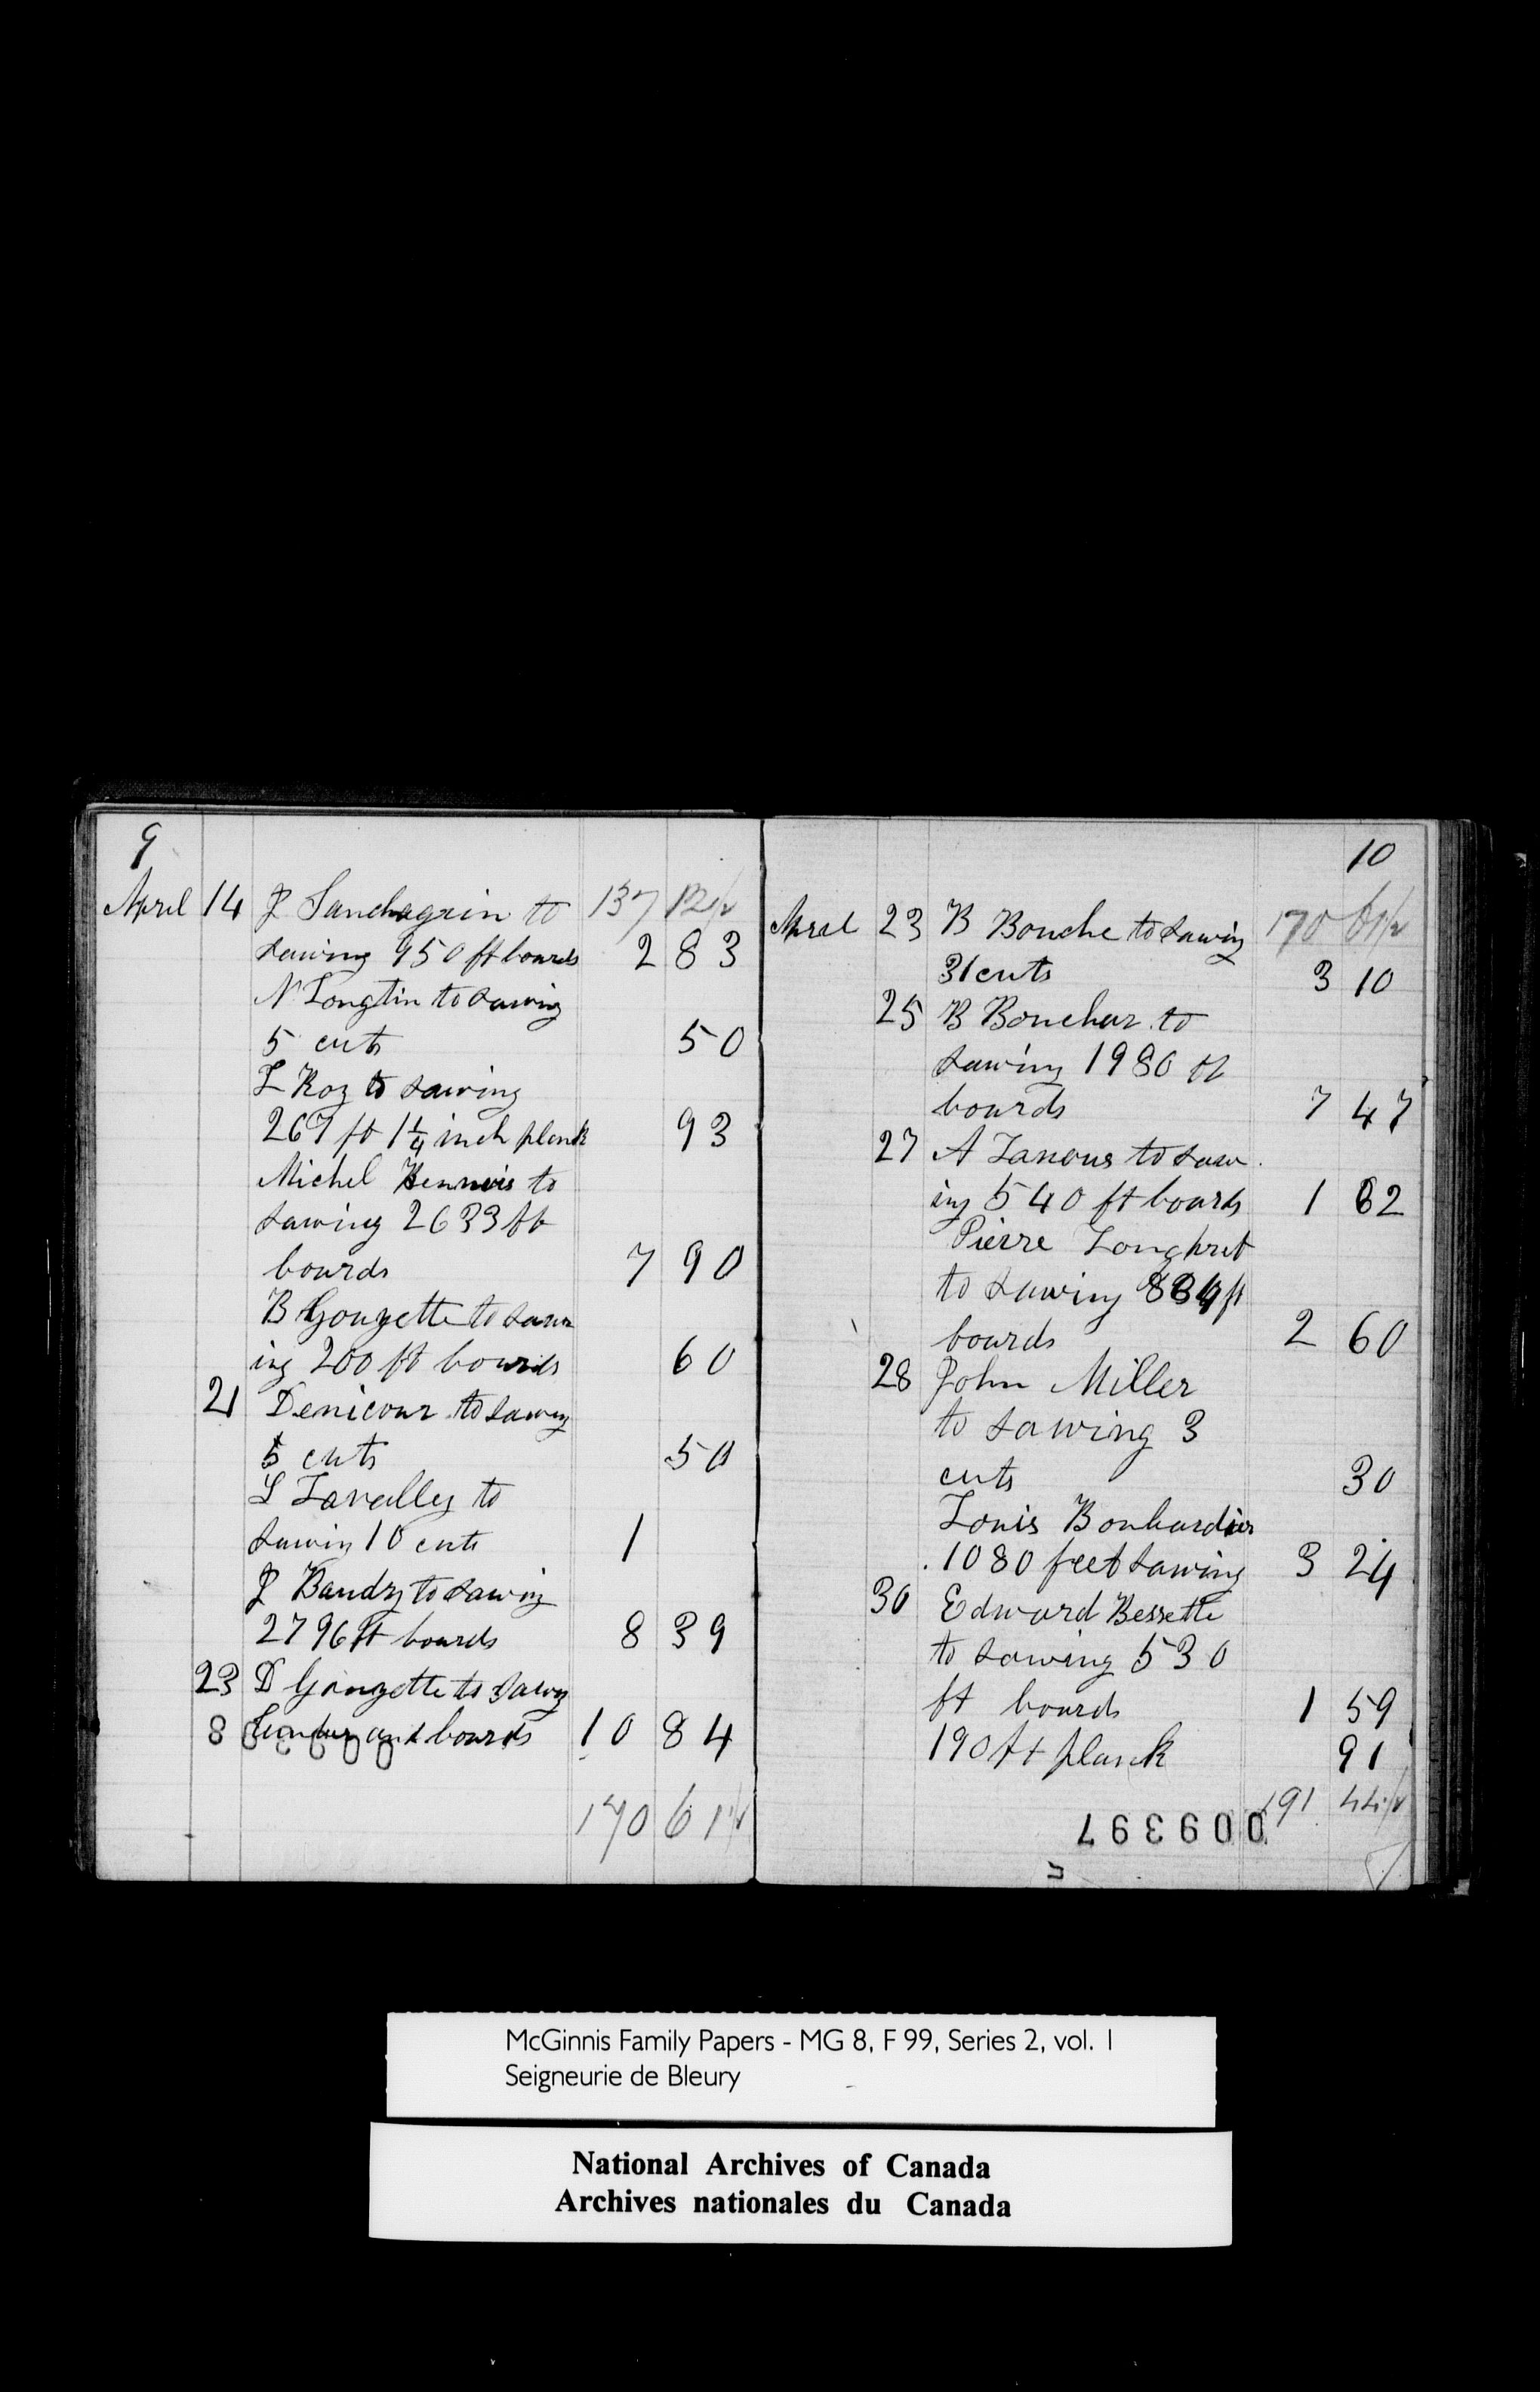 9
April 14 J Sanchagrin to 137 12½
sawing 950 ft boards 2 83
N Longtin to sawing
5 cuts 50
L Roy to sawing
267 ft 1¼ inch plank 93
Michel to
sawing 2633 ft
boards 7 90
B Gouyette to saw
ing 200 ft boards 60
21 Denicour to sawing
5 cuts 50
L Lavalley to
sawing 10 cuts 1
J Baudry to sawing
2796 ft boards 8 39
23 D Gouyette to sawing
and boards 10 84
170 61½
10
April 23 B Bouche to sawing 170 61½
31 cuts 3 10
25 B Bouchar to
sawing 1980 ft
boards 7 47
27 A Lanous to saw
ing 540 ft boards 1 62
Pierre
to sawing 834 ft
boards 2 60
28 John Miller
to sawing 3
cuts 30
Louis Bonbardier
1080 feet sawing 3 24
30 Edward Bessette
to sawing 530
ft boards 1 59
190 ft plank 91
191 44½
009397
McGinnis Family Papers - MG 8, F 99, Series 2, vol. 1
Seigneurie de Bleury
National Archives of Canada
Archives nationales du Canada